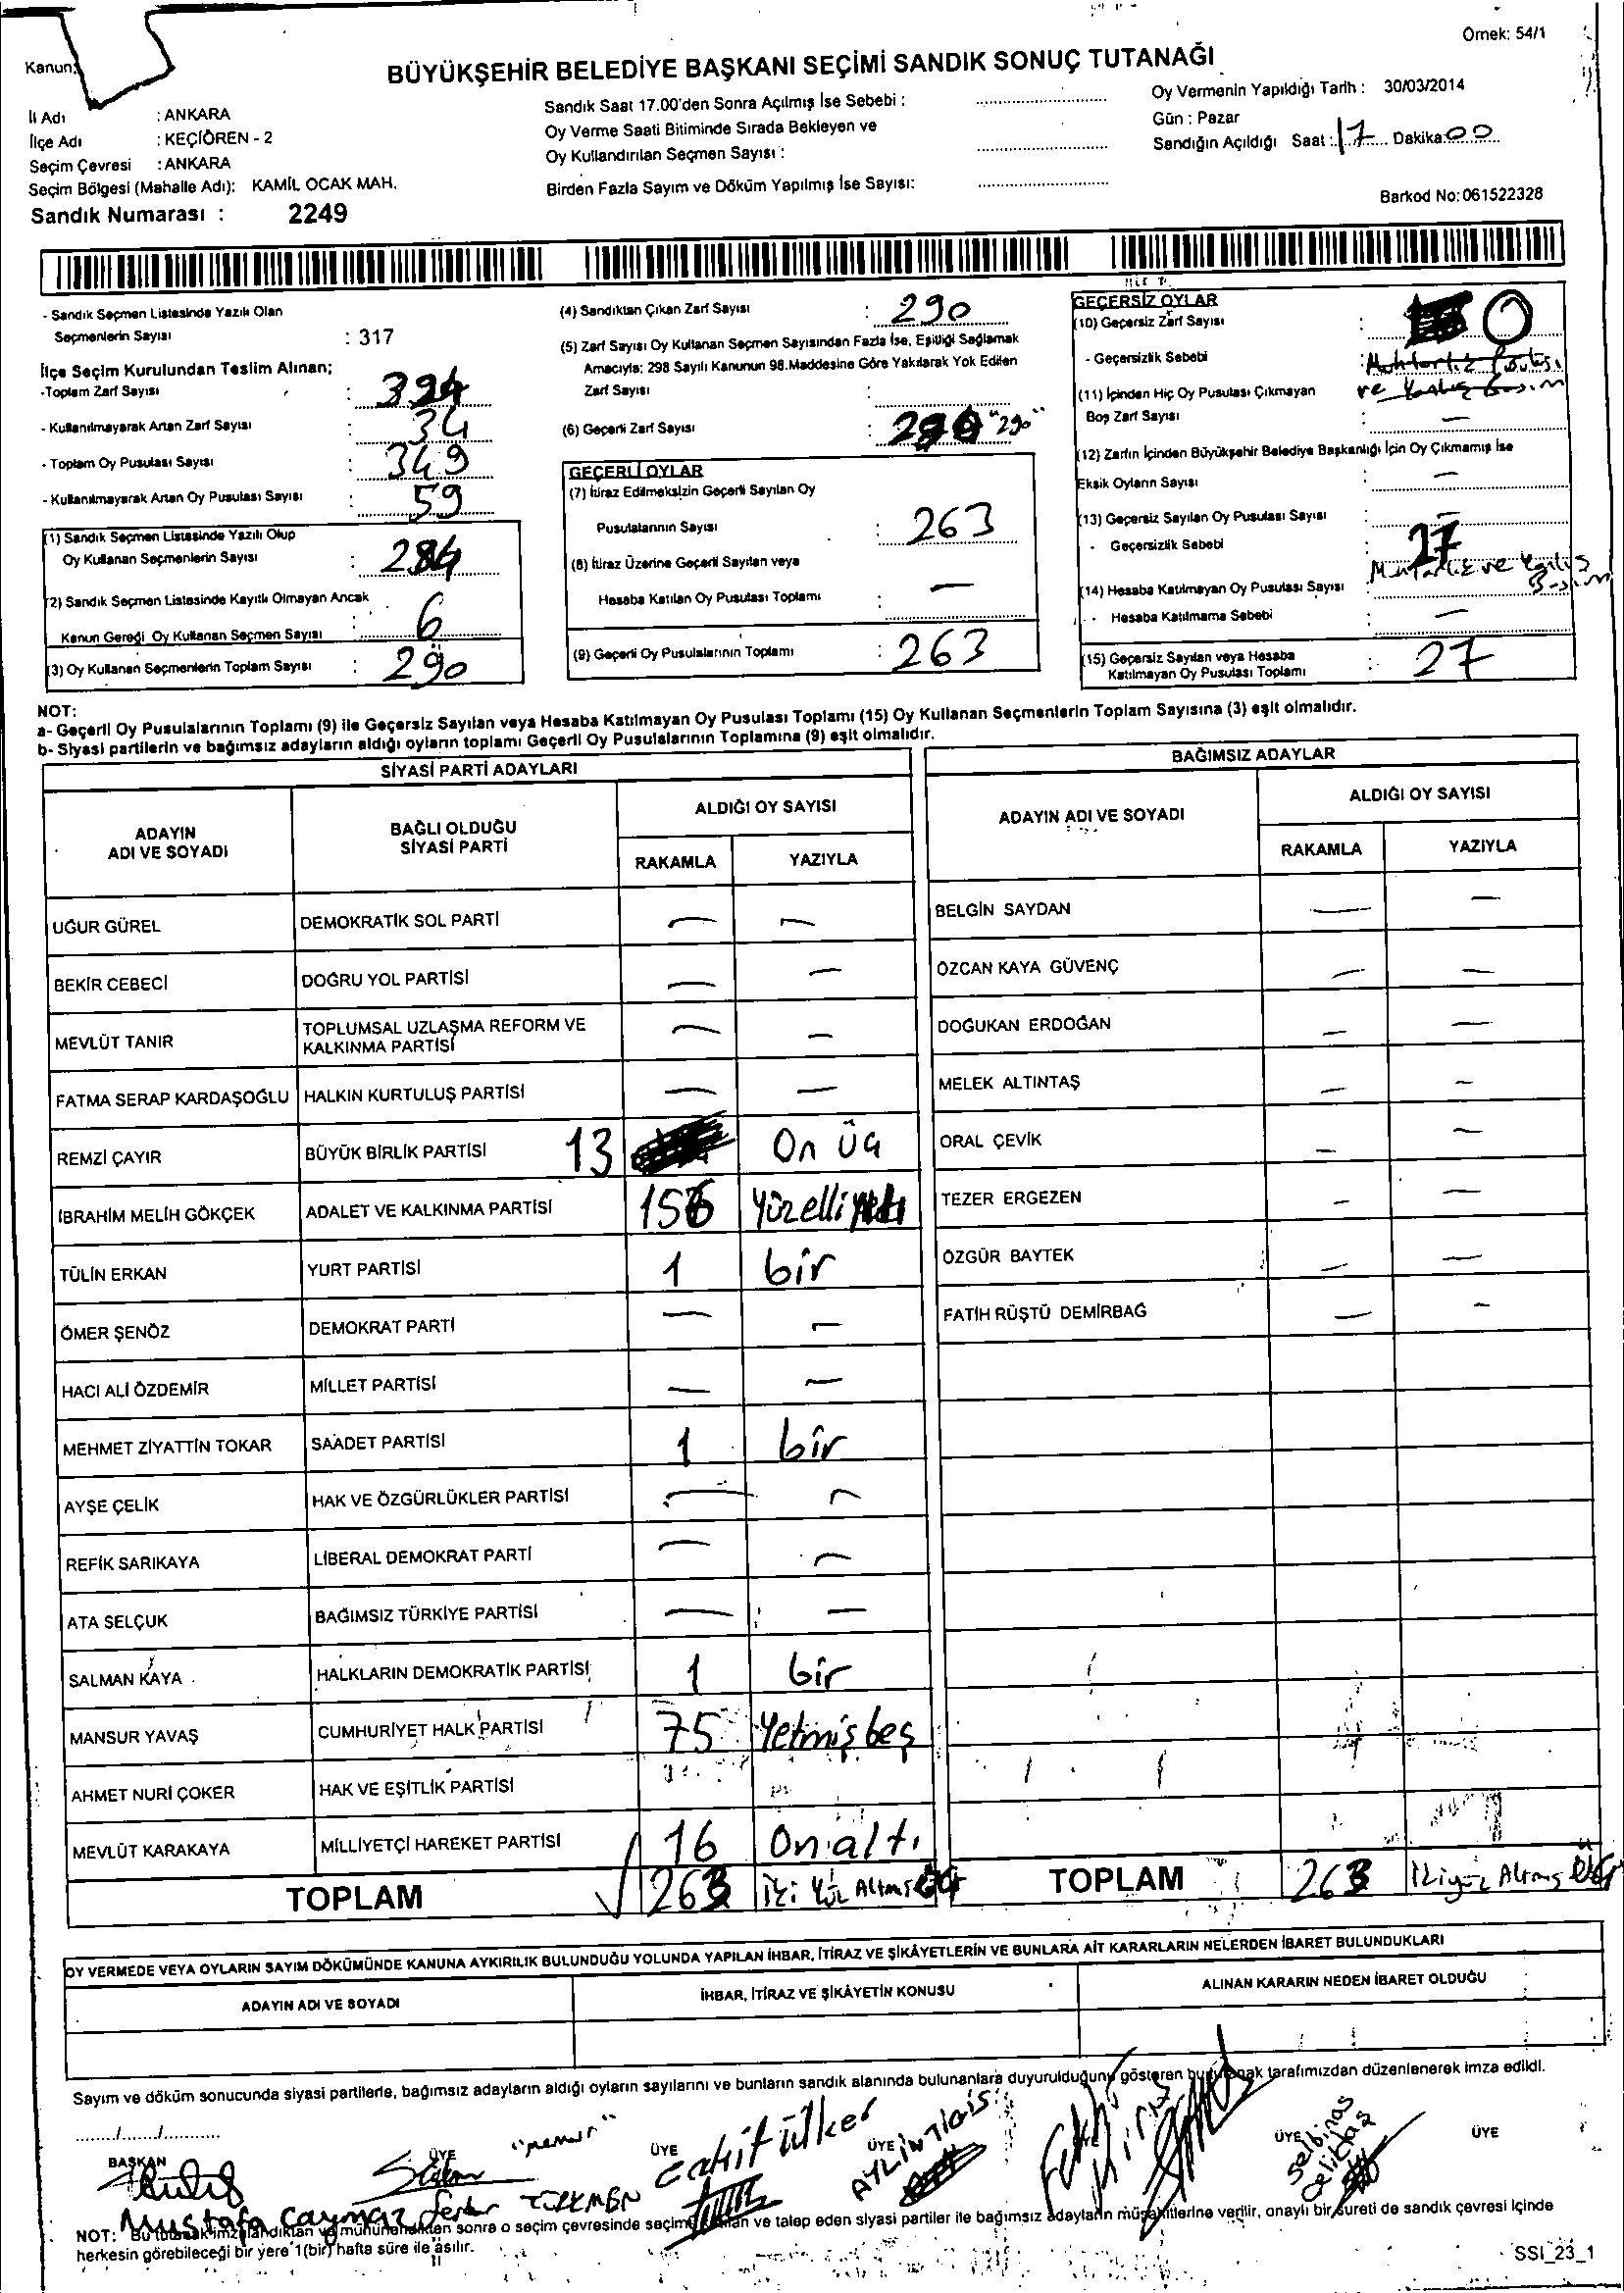 Örnek: 54/1
Kanun:
BÜYÜKŞEHİR BELEDİYE BAŞKANI SEÇİMİ SANDIK SONUÇ TUTANAĞI
İl Adı : ANKARA
İlçe Adı : KEÇİÖREN - 2
Seçim Çevresi : ANKARA
Seçim Bölgesi (Mahalle Adı): KAMİL OCAK MAH.
Sandık Numarası : 2249
Sandık Saat 17.00'den Sonra Açılmış İse Sebebi :
Oy Verme Saati Bitiminde Sırada Bekleyen ve
Oy Kullandırılan Seçmen Sayısı :
Birden Fazla Sayım ve Döküm Yapılmış İse Sayısı:
Oy Vermenin Yapıldığı Tarih : 30/03/2014
Gün : Pazar
Sandığın Açıldığı Saat : 17 Dakika: 00
Barkod No: 061522328
- Sandık Seçmen Listesinde Yazılı Olan
Seçmenlerin Sayısı : 317
İlçe Seçim Kurulundan Teslim Alınan;
-Toplam Zarf Sayısı : 324
- Kullanılmayarak Artan Zarf Sayısı : 34
- Toplam Oy Pusulası Sayısı : 349
- Kullanılmayarak Artan Oy Pusulası Sayısı : 59
(1) Sandık Seçmen Listesinde Yazılı Olup
Oy Kullanan Seçmenlerin Sayısı : 284
(2) Sandık Seçmen Listesinde Kayıtlı Olmayan Ancak
Kanun Gereği Oy Kullanan Seçmen Sayısı : 6
(3) Oy Kullanan Seçmenlerin Toplam Sayısı : 290
(4) Sandıktan Çıkan Zarf Sayısı : 290
(5) Zarf Sayısı Oy Kullanan Seçmen Sayısından Fazla İse, Eşitliği Sağlamak
Amacıyla: 298 Sayılı Kanunun 98.Maddesine Göre Yakılarak Yok Edilen
Zarf Sayısı :
(6) Geçerli Zarf Sayısı : "290"
GEÇERLİ OYLAR
(7) İtiraz Edilmeksizin Geçerli Sayılan Oy
Pusulalarının Sayısı : 263
(8) İtiraz Üzerine Geçerli Sayılan veya
Hesaba Katılan Oy Pusulası Toplamı : —
(9) Geçerli Oy Pusulalarının Toplamı : 263
GEÇERSİZ OYLAR
(10) Geçersiz Zarf Sayısı : 0
- Geçersizlik Sebebi :
(11) İçinden Hiç Oy Pusulası Çıkmayan
Boş Zarf Sayısı —
(12) Zarfın İçinden Büyükşehir Belediye Başkanlığı İçin Oy Çıkmamış İse
Eksik Oyların Sayısı : —
(13) Geçersiz Sayılan Oy Pusulası Sayısı : 27
- Geçersizlik Sebebi ve Yanlış
(14) Hesaba Katılmayan Oy Pusulası Sayısı Basım
- Hesaba Katılmama Sebebi —
(15) Geçersiz Sayılan veya Hesaba
Katılmayan Oy Pusulası Toplamı : 27
NOT:
a- Geçerli Oy Pusulalarının Toplamı (9) ile Geçersiz Sayılan veya Hesaba Katılmayan Oy Pusulası Toplamı (15) Oy Kullanan Seçmenlerin Toplam Sayısına (3) eşit olmalıdır.
b- Siyasi partilerin ve bağımsız adayların aldığı oyların toplamı Geçerli Oy Pusulalarının Toplamına (9) eşit olmalıdır.
SİYASİ PARTİ ADAYLARI
ADAYIN ADI VE SOYADI
BAĞLI OLDUĞU SİYASİ PARTİ
ALDIĞI OY SAYISI
RAKAMLA YAZIYLA
UĞUR GÜREL DEMOKRATİK SOL PARTİ — —
BEKİR CEBECİ DOĞRU YOL PARTİSİ — —
MEVLÜT TANIR TOPLUMSAL UZLAŞMA REFORM VE KALKINMA PARTİSİ — —
FATMA SERAP KARDAŞOĞLU HALKIN KURTULUŞ PARTİSİ — —
REMZİ ÇAYIR BÜYÜK BİRLİK PARTİSİ 13 On üç
İBRAHİM MELİH GÖKÇEK ADALET VE KALKINMA PARTİSİ 156 Yüzelli
TÜLİN ERKAN YURT PARTİSİ 1 bir
ÖMER ŞENÖZ DEMOKRAT PARTİ — —
HACI ALİ ÖZDEMİR MİLLET PARTİSİ — —
MEHMET ZİYATTİN TOKAR SAADET PARTİSİ 1 bir
AYŞE ÇELİK HAK VE ÖZGÜRLÜKLER PARTİSİ — —
REFİK SARIKAYA LİBERAL DEMOKRAT PARTİ — —
ATA SELÇUK BAĞIMSIZ TÜRKİYE PARTİSİ — —
SALMAN KAYA HALKLARIN DEMOKRATİK PARTİSİ 1 bir
MANSUR YAVAŞ CUMHURİYET HALK PARTİSİ 75 Yetmiş beş
AHMET NURİ ÇOKER HAK VE EŞİTLİK PARTİSİ
MEVLÜT KARAKAYA MİLLİYETÇİ HAREKET PARTİSİ 16 On altı
TOPLAM 263 İki Yüz Altmış üç
BAĞIMSIZ ADAYLAR
ADAYIN ADI VE SOYADI
ALDIĞI OY SAYISI
RAKAMLA YAZIYLA
BELGİN SAYDAN — —
ÖZCAN KAYA GÜVENÇ — —
DOĞUKAN ERDOĞAN — —
MELEK ALTINTAŞ — —
ORAL ÇEVİK — —
TEZER ERGEZEN — —
ÖZGÜR BAYTEK — —
FATİH RÜŞTÜ DEMİRBAĞ — —
TOPLAM 263 İkiyüz Altmış üç
OY VERMEDE VEYA OYLARIN SAYIM DÖKÜMÜNDE KANUNA AYKIRILIK BULUNDUĞU YOLUNDA YAPILAN İHBAR, İTİRAZ VE ŞİKÂYETLERİN VE BUNLARA AİT KARARLARIN NELERDEN İBARET BULUNDUKLARI
ADAYIN ADI VE SOYADI İHBAR, İTİRAZ VE ŞİKÂYETİN KONUSU ALINAN KARARIN NEDEN İBARET OLDUĞU
Sayım ve döküm sonucunda siyasi partilerle, bağımsız adayların aldığı oyların sayılarını ve bunların sandık alanında bulunanlara duyurulduğunu gösteren bu tutanak tarafımızdan düzenlenerek imza edildi.
....../....../............
BAŞKAN ÜYE "memur" ÜYE Cahit Ülker ÜYE ÜYE ÜYE
Mustafa Caymaz Serdar TÜRKMEN
NOT: Bu tutanak imzalandıktan ve mühürlendikten sonra o seçim çevresinde seçime katılan ve talep eden siyasi partiler ile bağımsız adayların müşahitlerine verilir, onaylı bir sureti de sandık çevresi içinde
herkesin görebileceği bir yere 1(bir) hafta süre ile asılır.
SSI_23_1